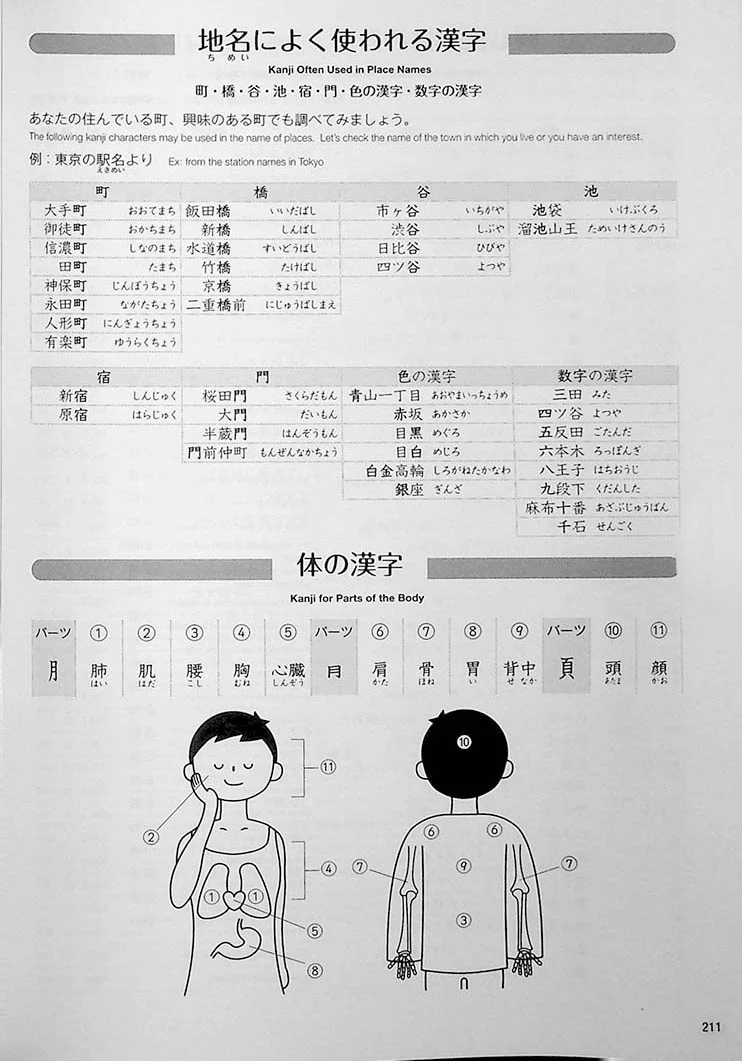 地名によく使われる漢字
ちめい
Kanji Often Used in Place Names
町・橋・谷・池・宿・門・色の漢字・数字の漢字
あなたの住んでいる町、興味のある町でも調べてみましょう。
The following kanji characters may be used in the name of places. Let's check the name of the town in which you live or you have an interest.
例：東京の駅名より Ex: from the station names in Tokyo
えきめい
町 橋 谷 池
大手町 おおてまち 飯田橋 いいだばし 市ヶ谷 いちがや 池袋 いけぶくろ
御徒町 おかちまち 新橋 しんばし 渋谷 しぶや 溜池山王 ためいけさんのう
信濃町 しなのまち 水道橋 すいどうばし 日比谷 ひびや
田町 たまち 竹橋 たけばし 四ツ谷 よつや
神保町 じんぼうちょう 京橋 きょうばし
永田町 ながたちょう 二重橋前 にじゅうばしまえ
人形町 にんぎょうちょう
有楽町 ゆうらくちょう
宿 門 色の漢字 数字の漢字
新宿 しんじゅく 桜田門 さくらだもん 青山一丁目 あおやまいっちょうめ 三田 みた
原宿 はらじゅく 大門 だいもん 赤坂 あかさか 四ツ谷 よつや
半蔵門 はんぞうもん 目黒 めぐろ 五反田 ごたんだ
門前仲町 もんぜんなかちょう 目白 めじろ 六本木 ろっぽんぎ
白金高輪 しろがねたかなわ 八王子 はちおうじ
銀座 ぎんざ 九段下 くだんした
麻布十番 あざぶじゅうばん
千石 せんごく
体の漢字
Kanji for Parts of the Body
パーツ ① ② ③ ④ ⑤ パーツ ⑥ ⑦ ⑧ ⑨ パーツ ⑩ ⑪
月 肺 肌 腰 胸 心臓 月 肩 骨 胃 背中 頁 頭 顔
はい はだ こし むね しんぞう かた ほね い せ なか あたま かお
⑩
⑪
②
⑥ ⑥
④ ⑦ ⑨ ⑦
① ①
③
⑤
⑧
211